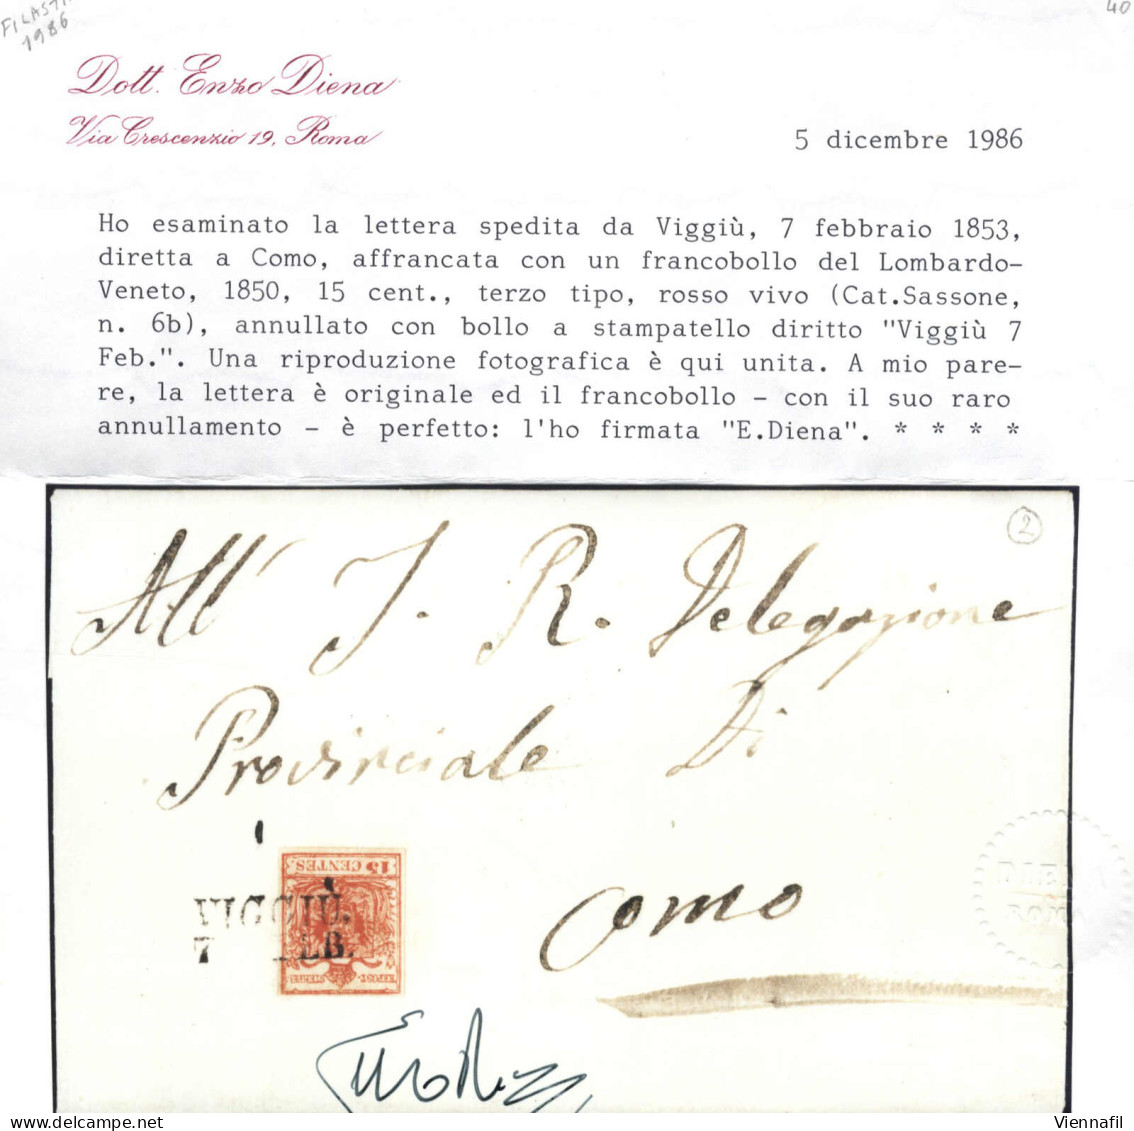 1986
40
Dott. Enzo Diena
Via Crescenzio 19, Roma
5 dicembre 1986
Ho esaminato la lettera spedita da Viggiù, 7 febbraio 1853,
diretta a Como, affrancata con un francobollo del Lombardo-
Veneto, 1850, 15 cent., terzo tipo, rosso vivo (Cat.Sassone,
n. 6b), annullato con bollo a stampatello diritto "Viggiù 7
Feb.". Una riproduzione fotografica è qui unita. A mio pare-
re, la lettera è originale ed il francobollo - con il suo raro
annullamento - è perfetto: l'ho firmata "E.Diena". * * * *
2
All' I. R. Delegazione
Provinciale Di
Como
15 CENTES
VIGGIÙ.
7 FEB.
DIENA
ROMA
Viennafil